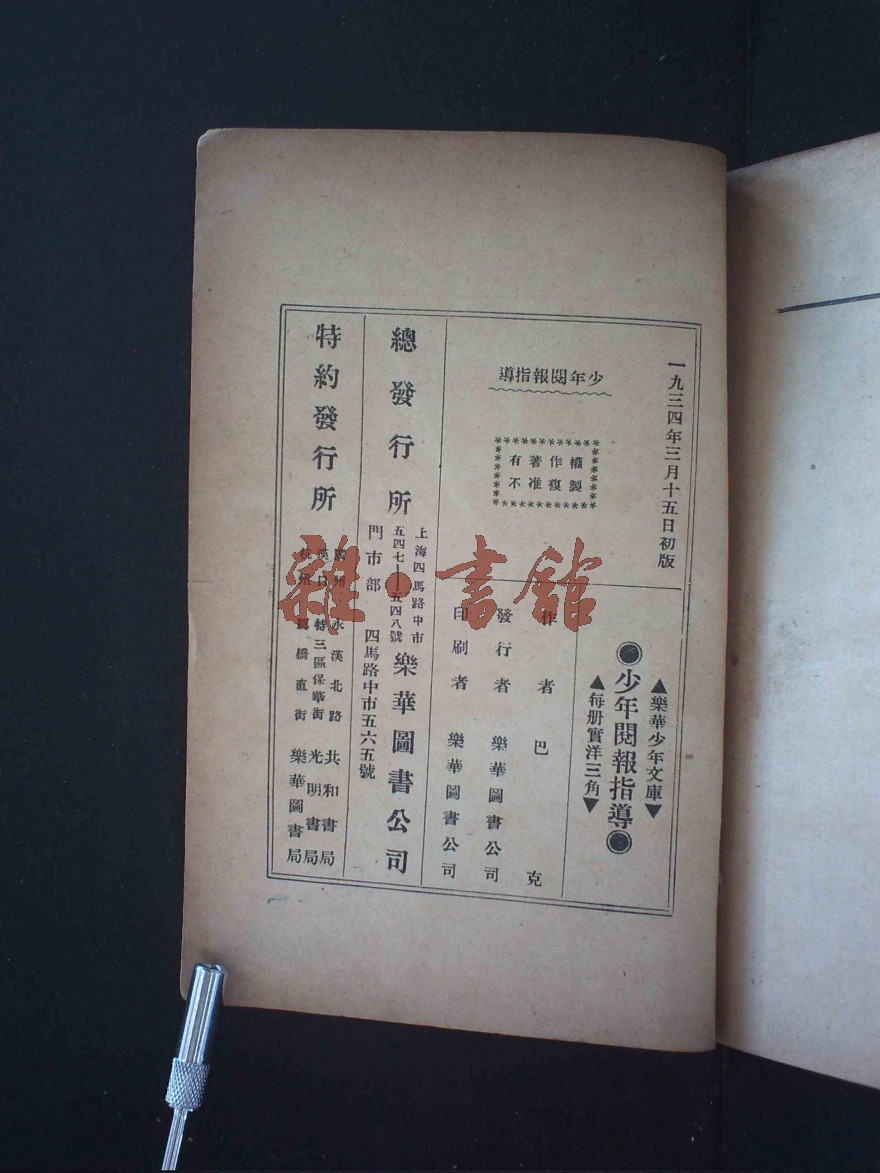 一九三四年三月十五日初版
少年閱報指導
有著作權
不准複製
▲樂華少年文庫▼
●少年閱報指導●
▲每册實洋三角▼
作者 巴克
發行者 樂華圖書公司
印刷者 樂華圖書公司
總發行所
上海四馬路中市
五四七——五四八號
樂華圖書公司
門市部 四馬路中市五六五號
特約發行所
廣州 永漢北路 共和書局
漢口 特三區保華街 光明書局
杭州 橋直街 樂華圖書局
雜·書館